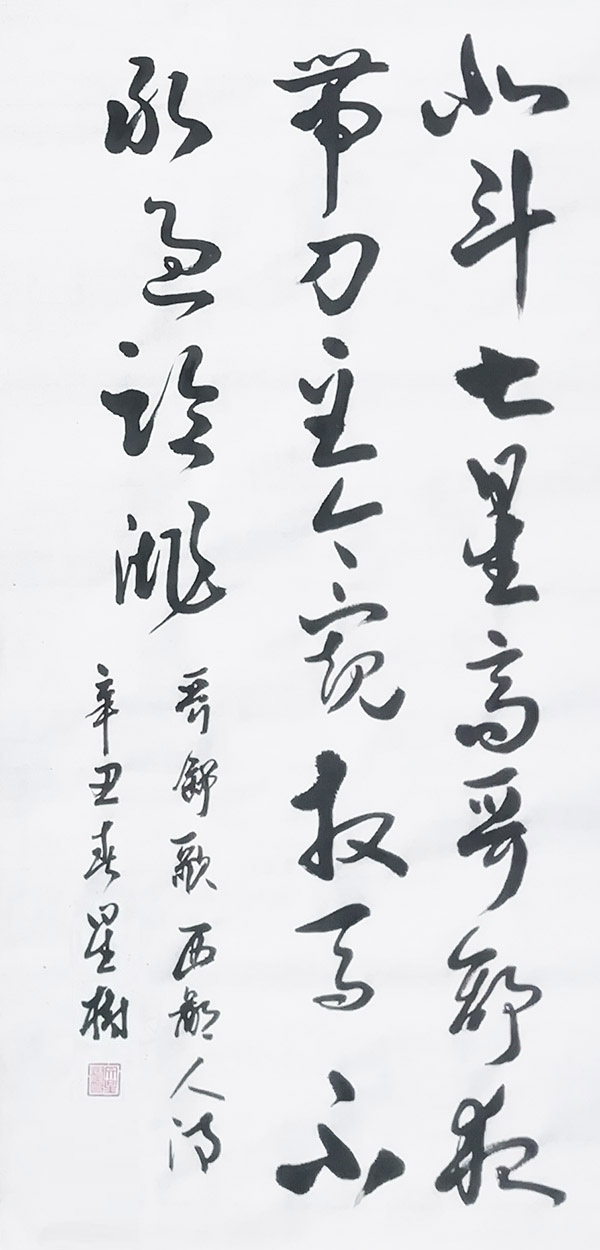 北斗七星高哥舒夜
帶刀至今窺牧馬不
敢過臨洮
哥舒歌西鄙人詩
辛丑春星樹